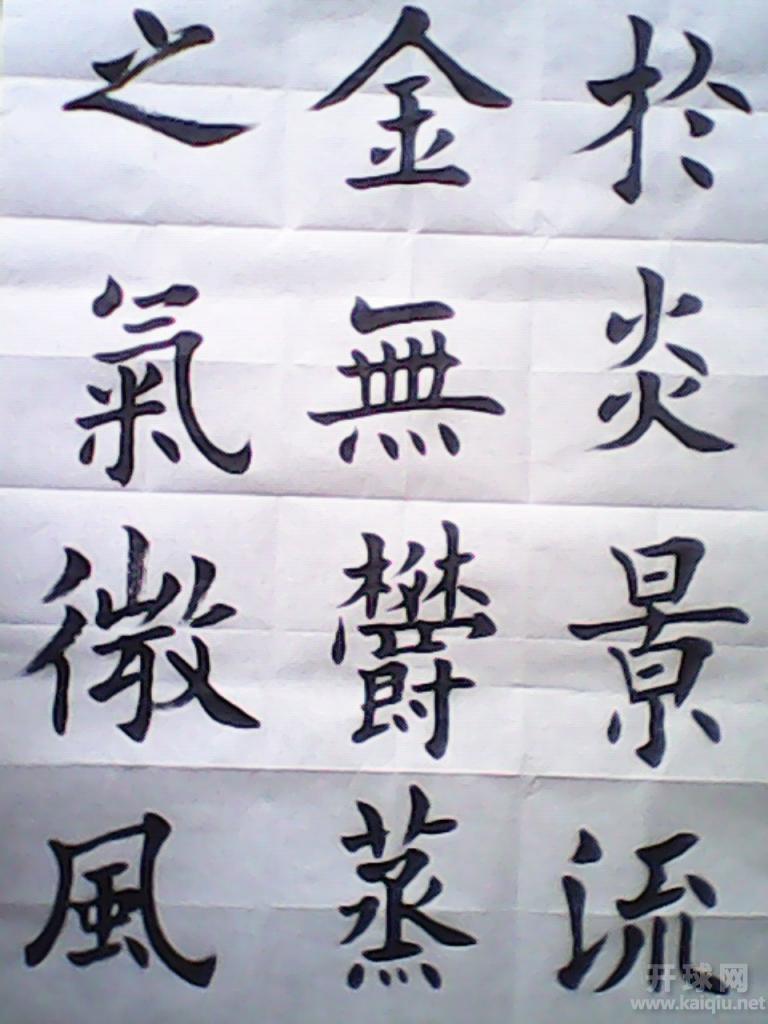 於炎景流
金無鬱蒸
之氣微風
开球网
www.kaiqiu.net